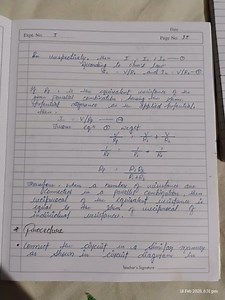 Date
Expt. No. 7
Page No. 27
In respectively, then I = I₁ + I₂ —
According to ohm's law
I₁ = V/R₁ and I₂ = V/R₂ —
If Rp is the equivalent resistance of the
given parallel combination, having the same
potential difference as the applied potential
then,
I = V/Rp —
from eqn we get
V/Rp = V/R₁ + V/R₂
1/Rp = 1/R₁ + 1/R₂
Rp = R₁R₂
R₁+R₂
Therefore, when a number of resistance are
connected in a parallel combination, then
reciprocal of the equivalent resistance is
equal to the sum of reciprocal of
individual resistance.
Procedure
Connect the circuit in a similar
as shown in circuit diagram in
Teacher's Signature
18 Feb 2025, 4:11 pm